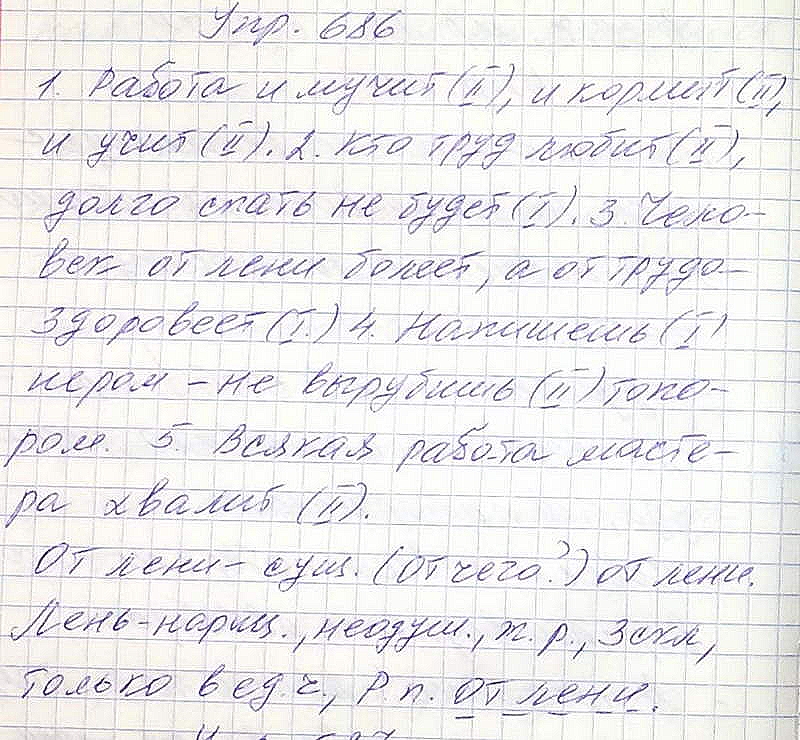 Упр. 686
1. Работа и мучит (II), и кормит (II),
и учит (II). 2. Кто труд любит (II),
долго спать не будет (I). 3. Чело-
век от лени болеет, а от трудо-
здоровеет (I.) 4. Напишешь (I)
пером – не вырубишь (II) топо-
ром. 5. Всякая работа масте-
ра хвалит (II).
От лени – сущ. (От чего?) от лени.
Лень – нариц., неодуш., ж. р., 3 скл,
только в ед. ч., Р. п. от лени.